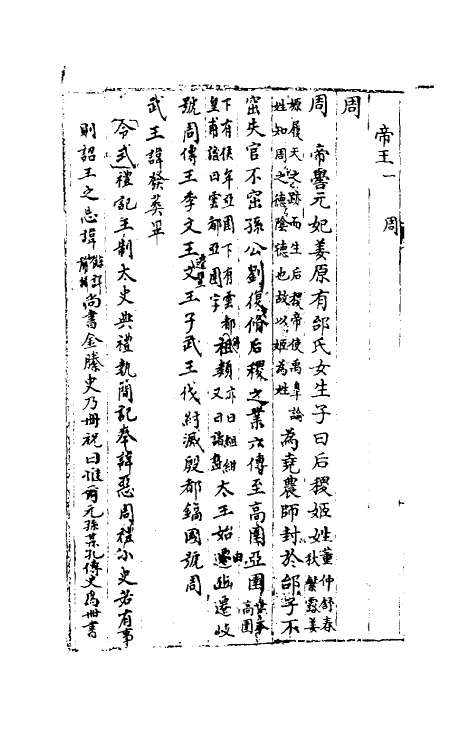 帝王一　周
周
周　帝嚳元妃姜原有邰氏女生子曰后稷姬姓董仲舒春秋繁露姜
嫄履天之跡而生后稷帝使禹皐論姓知周之德陰德也故以姬爲姓為堯農師封於邰子不
窋失官不窋孫公劉復脩后稷之業六傳至高圉亞圉高圉
下有侯年亞圉下有雲都皇甫謐曰雲都亞圉字祖類亦曰組紺又曰諸盩太王始由豳遷岐
號周傳王季文王文王子武王伐紂滅殷都鎬國號周
武王諱發葬畢
令式禮記王制太史典禮執簡記奉諱惡周禮小史若有事
則詔王之忌諱尚書金縢史乃冊祝曰惟爾元孫某孔傳史爲冊書